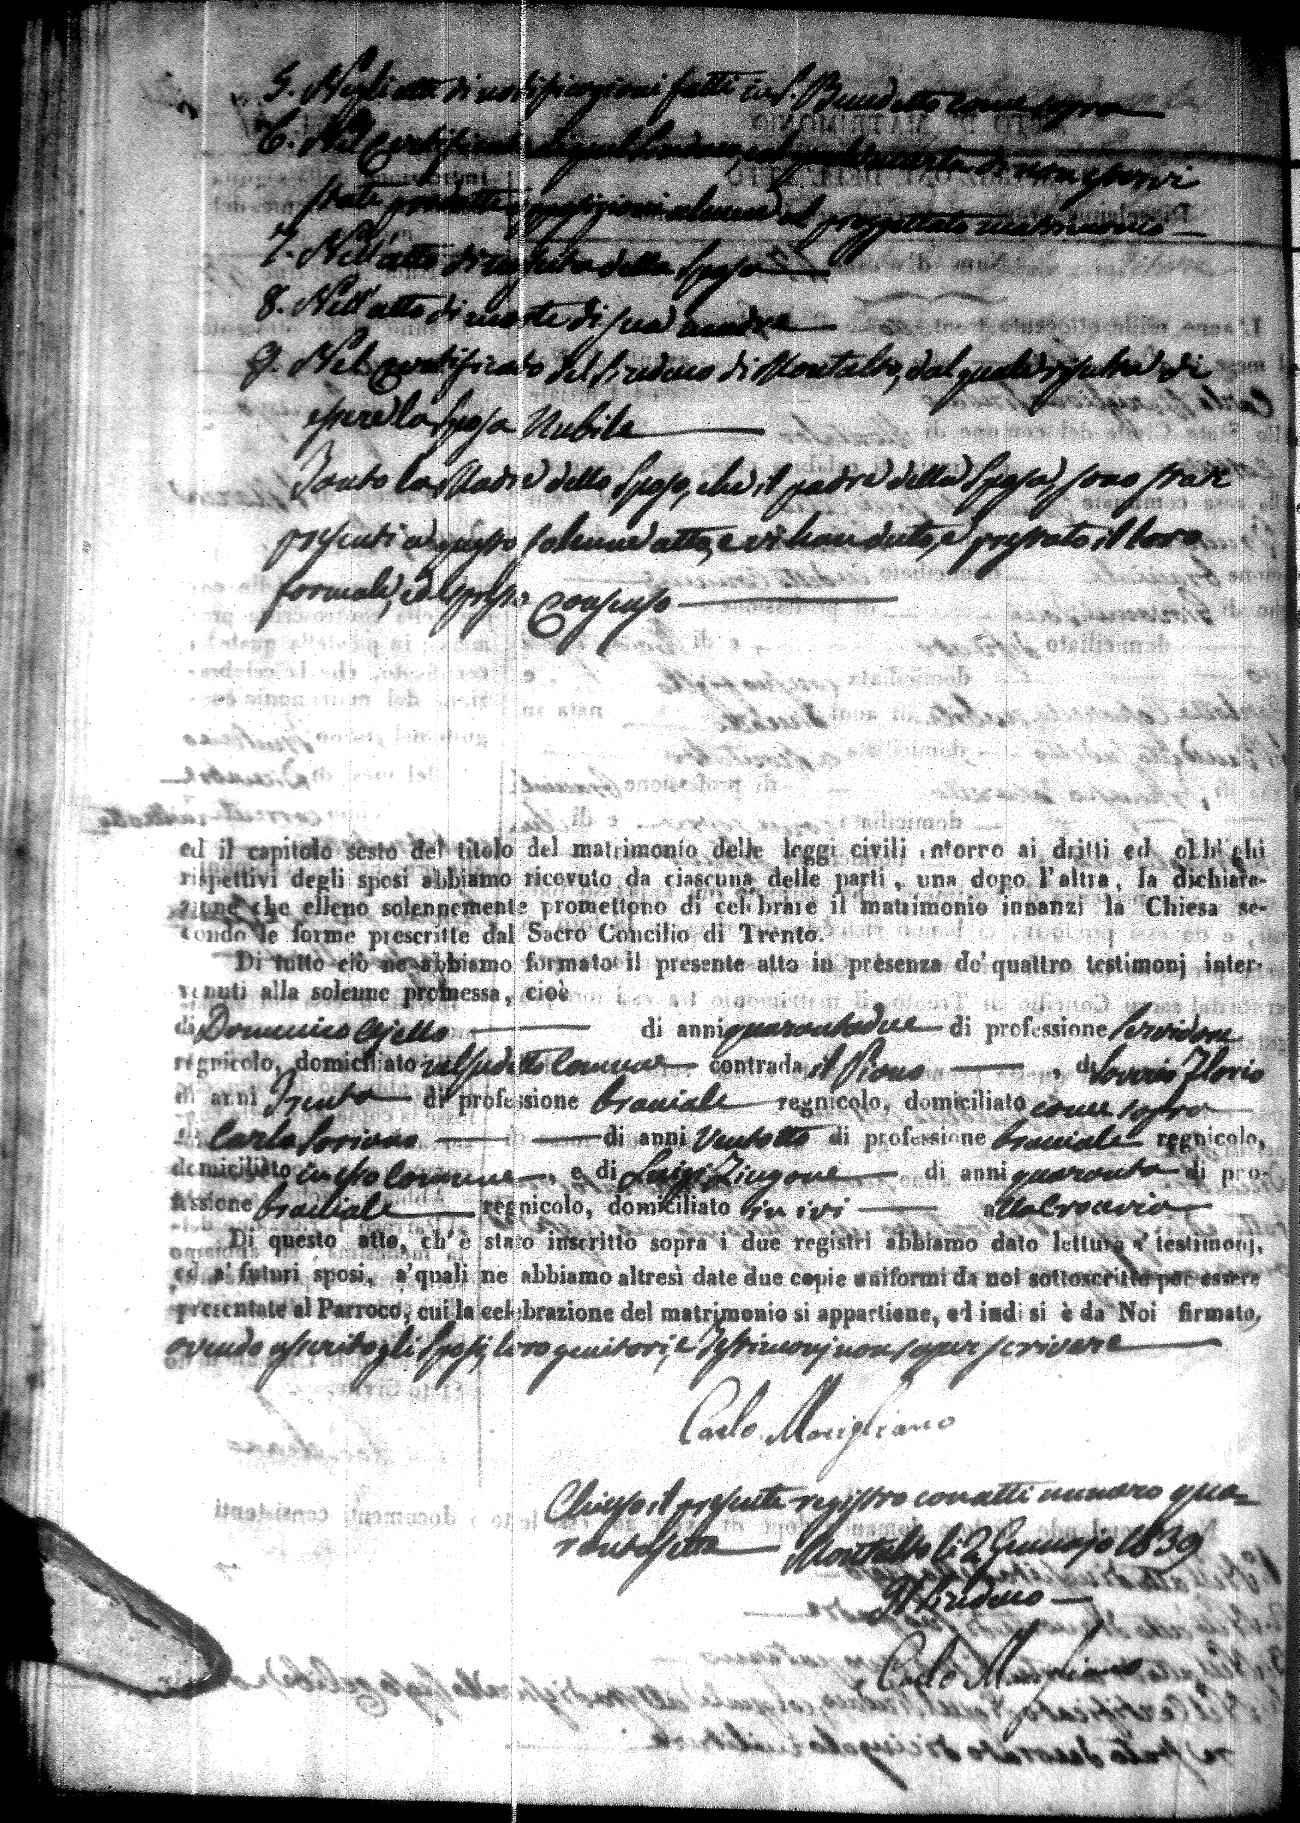 5. Negli atti di notificazioni fatti in S. Benedetto come sopra
6. Nel Certificato di quel Sindaco, dal quale consta di non essersi
state prodotte opposizioni alcune al proggettato matrimonio
7. Nell'atto di nascita della Sposa
8. Nell'atto di morte di sua madre
9. Nel Certificato del Sindaco di Montalto, dal quale risulta di
essere la Sposa Nubile
Tanto la Madre dello Sposo, che il padre della Sposa sono stati
presenti a questo solenne atto, e vi han dato, e prestato il loro
formale, ed espresso Consenso
ed il capitolo sesto del titolo del matrimonio delle leggi civili intorno ai dritti ed obblighi
rispettivi degli sposi abbiamo ricevuto da ciascuna delle parti, una dopo l'altra, la dichiara-
zione che elleno solennemente promettono di celebrare il matrimonio innanzi la Chiesa se-
condo le forme prescritte dal Sacro Concilio di Trento.
Di tutto ciò ne abbiamo formato il presente atto in presenza de' quattro testimonj inter-
venuti alla solenne promessa, cioè
di Domenico Ajello di anni quarantadue di professione
regnicolo, domiciliato contrada il Piano , di Saverio Florio
di anni Trenta di professione bracciale regnicolo, domiciliato come sopra
di Carlo Soriano di anni Ventotto di professione bracciale regnicolo,
domiciliato in esso Comune , e di Luigi Zingone di anni quaranta di pro-
fessione bracciale regnicolo, domiciliato ivi alla Crocevia
Di questo atto, ch'è stato inscritto sopra i due registri abbiamo dato lettura a' testimonj,
ed a' futuri sposi, a' quali ne abbiamo altresì date due copie uniformi da noi sottoscritte per essere
presentate al Parroco, cui la celebrazione del matrimonio si appartiene, ed indi si è da Noi firmato,
avendo asserito gli Sposi, loro genitori, e Testimonj non saper scrivere
Carlo Marigliano
Chiuso il presente registro con atti numero qua-
rantasette Montalto li 2 Gennajo 1839
Il Sindaco
Carlo Marigliano